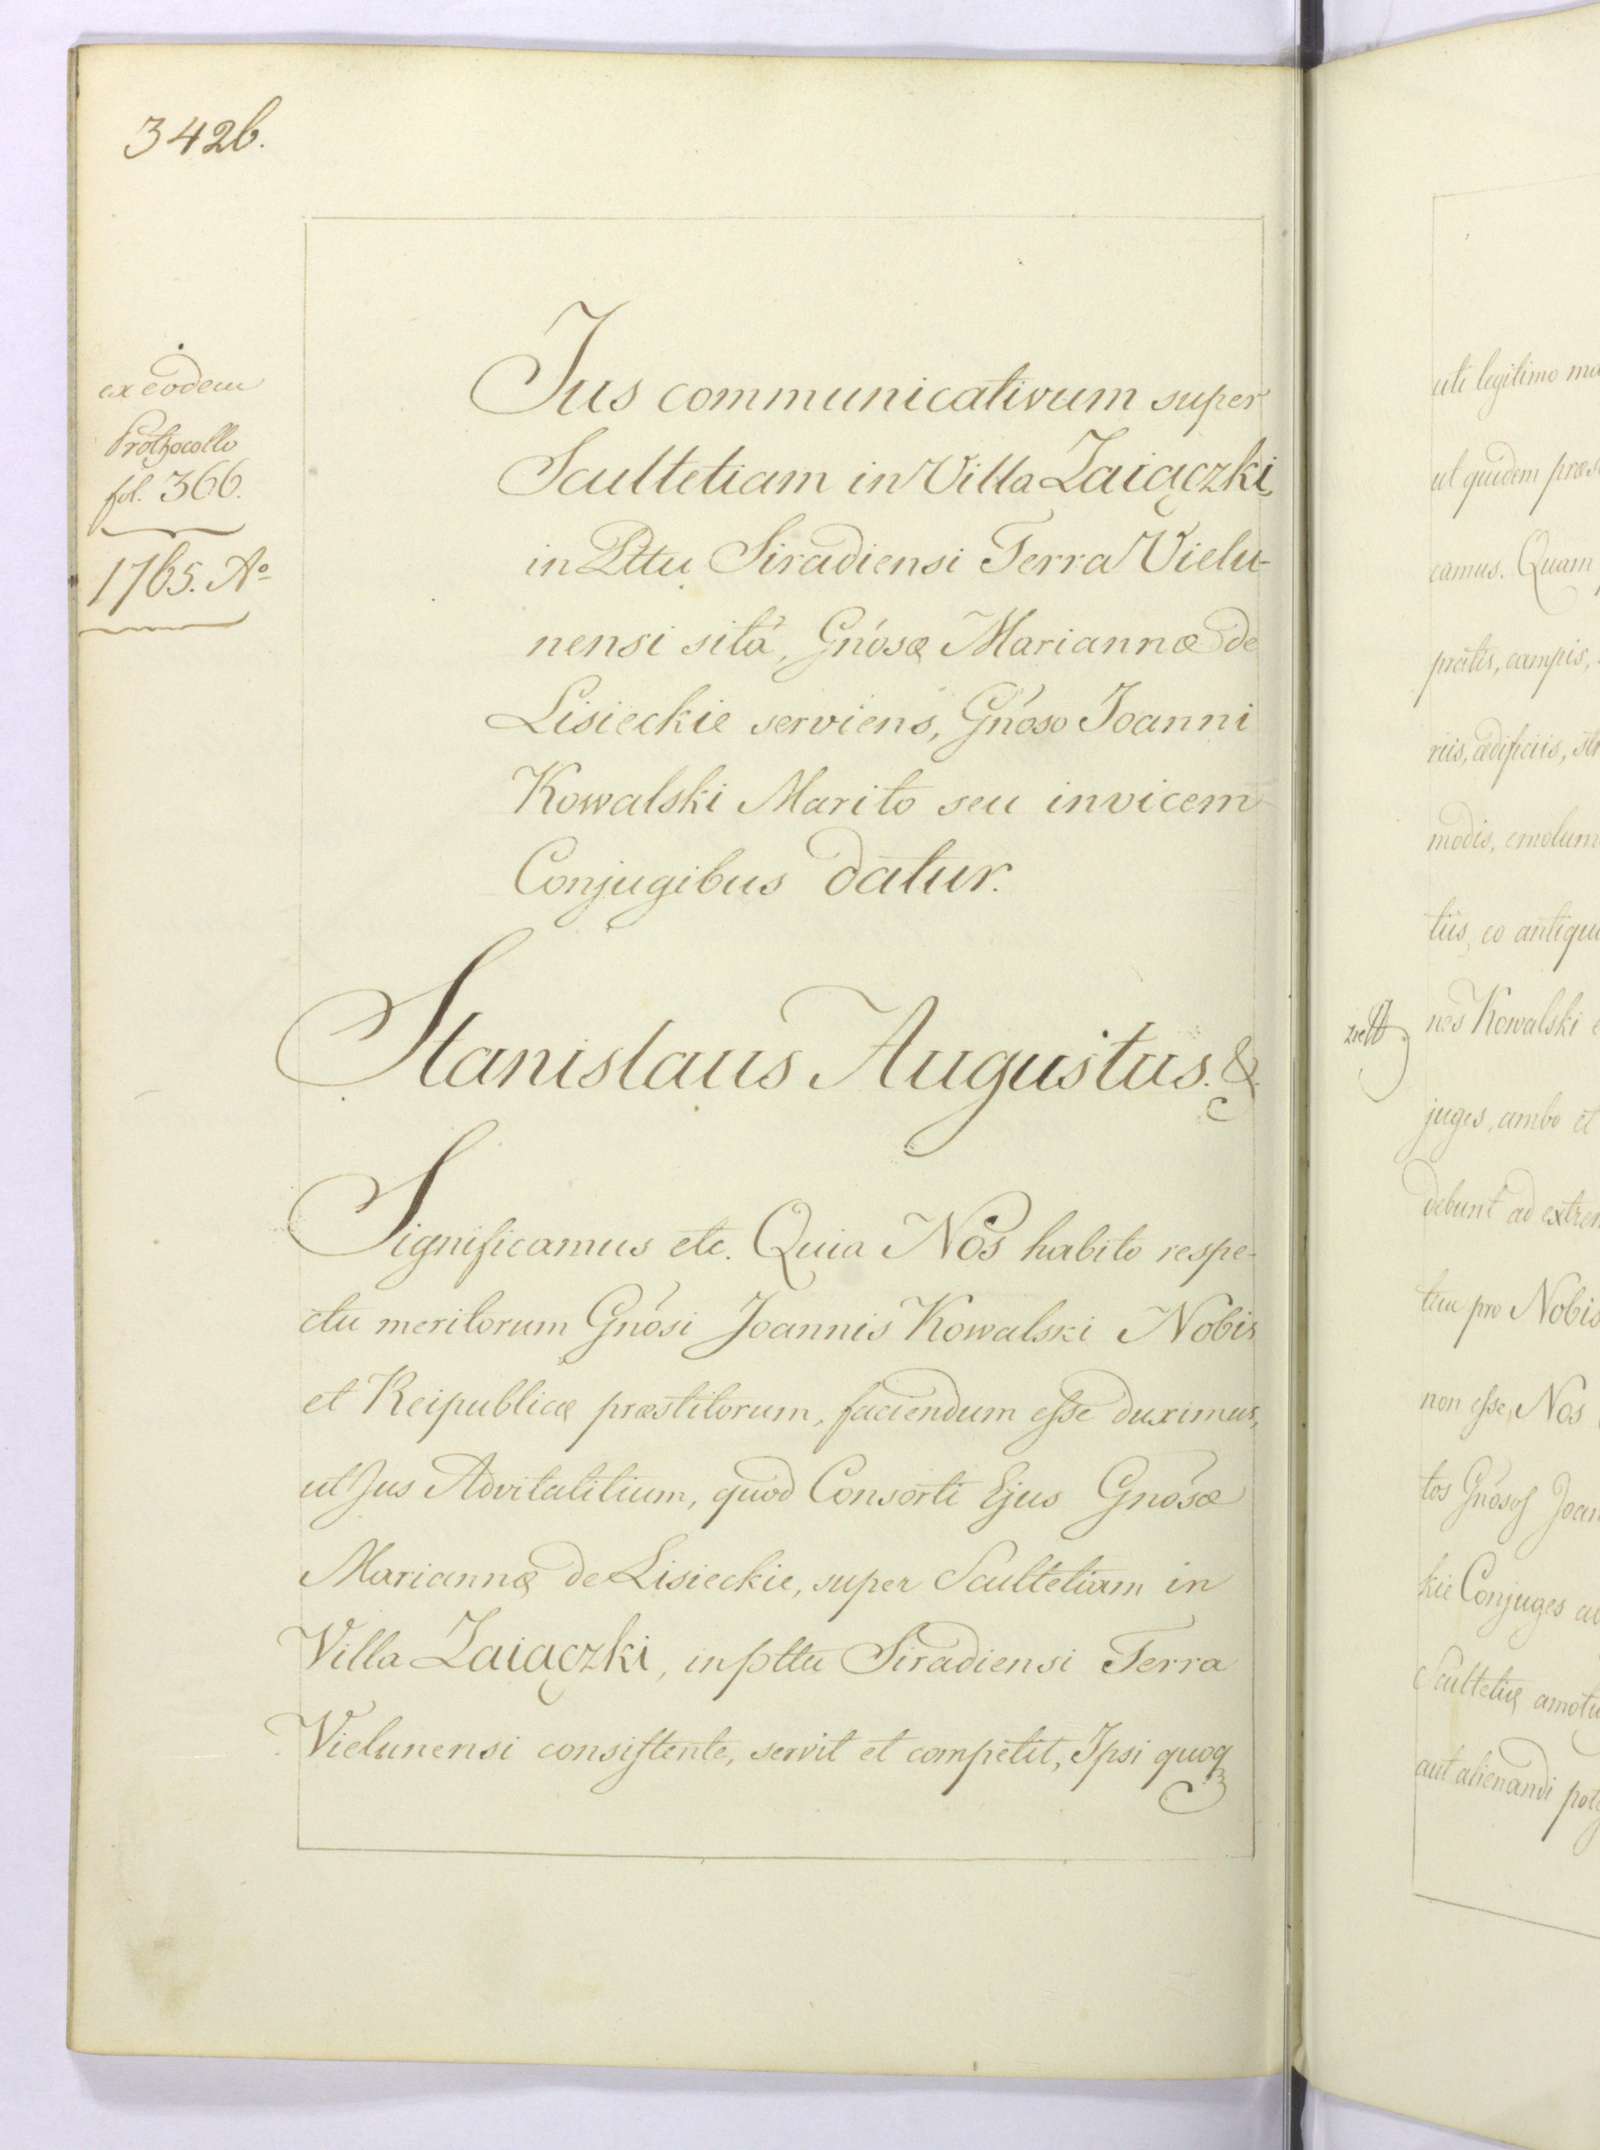 342b.
ex eodem
Prothocollo
fol. 366.
1765. Aº
Jus communicativum super
Scultetiam in Villa Zaiączki,
in Pttu Siradiensi Terra Vielu-
nensi sitá, Gnósæ Mariannæ de
Lisieckie serviens, Gnóso Joanni
Kowalski Marito seu invicem
Conjugibus datur.
Stanislaus Augustus. &.
Significamus etc. Quia Nos habito respe-
ctu meritorum Gnósi Joannis Kowalski Nobis
et Reipublicæ præstitorum, faciendum esse duximus,
ut Jus Advitalitium, quod Consorti Ejus Gnósæ
Mariannæ de Lisieckie, super Scultetiam in
Villa Zaiączki, in pttu Siradiensi Terra
Vielunensi consistente, servit et competit, Ipsi quoq
uti legitimo
ut quidem
camus. Quam
pratis, campis,
riis, ædificiis,
modis,
tiis, eo
nes Kowalski
juges, ambo et
debunt ad
tuu pro Nobis
non esse, Nos
tos Gnósos
kie Conjuges
Scultetiæ
aut alienandi